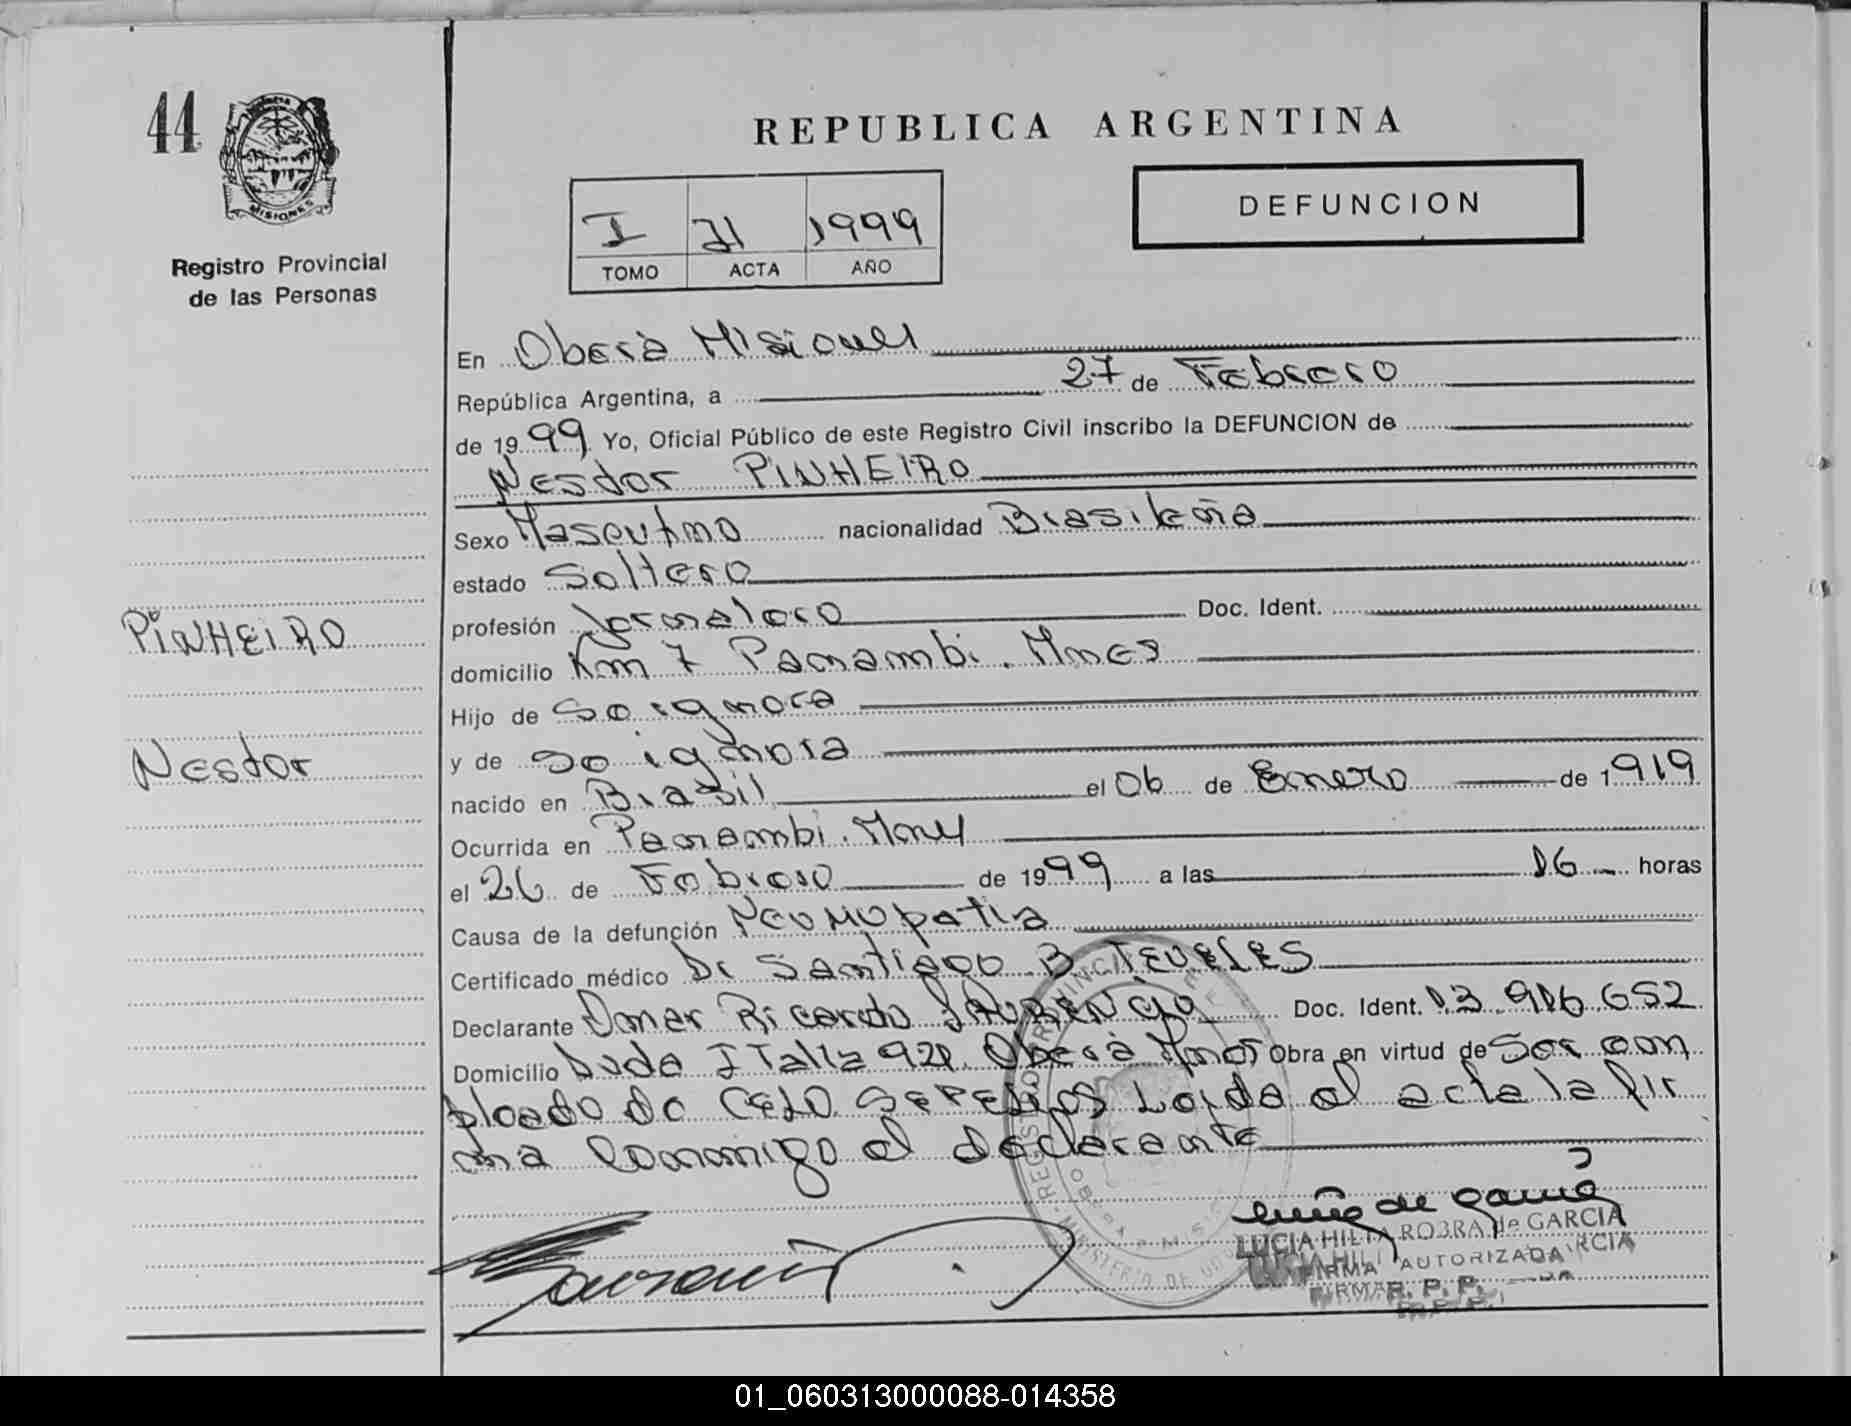 44
MISIONES
Registro Provincial
de las Personas
REPUBLICA ARGENTINA
DEFUNCION
I 71 1999
TOMO ACTA AÑO
En Oberà Misiones
República Argentina, a 27 de Febrero
de 1999 Yo, Oficial Público de este Registro Civil inscribo la DEFUNCION de
Nestor PINHEIRO
Sexo Masculino nacionalidad Brasileña
estado Soltero
profesión Jornalero Doc. Ident.
domicilio Km 7 Panambi. Mnes
Hijo de Se ignora
y de Se ignora
nacido en Brasil el 06 de Enero de 1919
Ocurrida en Panambi. Mnes
el 26 de Febrero de 1999 a las 16 horas
Causa de la defunción Neumopatia
Certificado médico Dr Santiago B TEVELES
Declarante Omar Ricardo Doc. Ident. 13.916.652
Domicilio Italia 921 Oberà Mnes Obra en virtud de Ser em
pleado de CELO SEPELIOS Leida el acta la fir
ma conmigo el declarante
PINHEIRO
Nestor
LUCIA HILDA ROBRA de GARCIA
FIRMA AUTORIZADA
R. P. P.
01_060313000088-014358